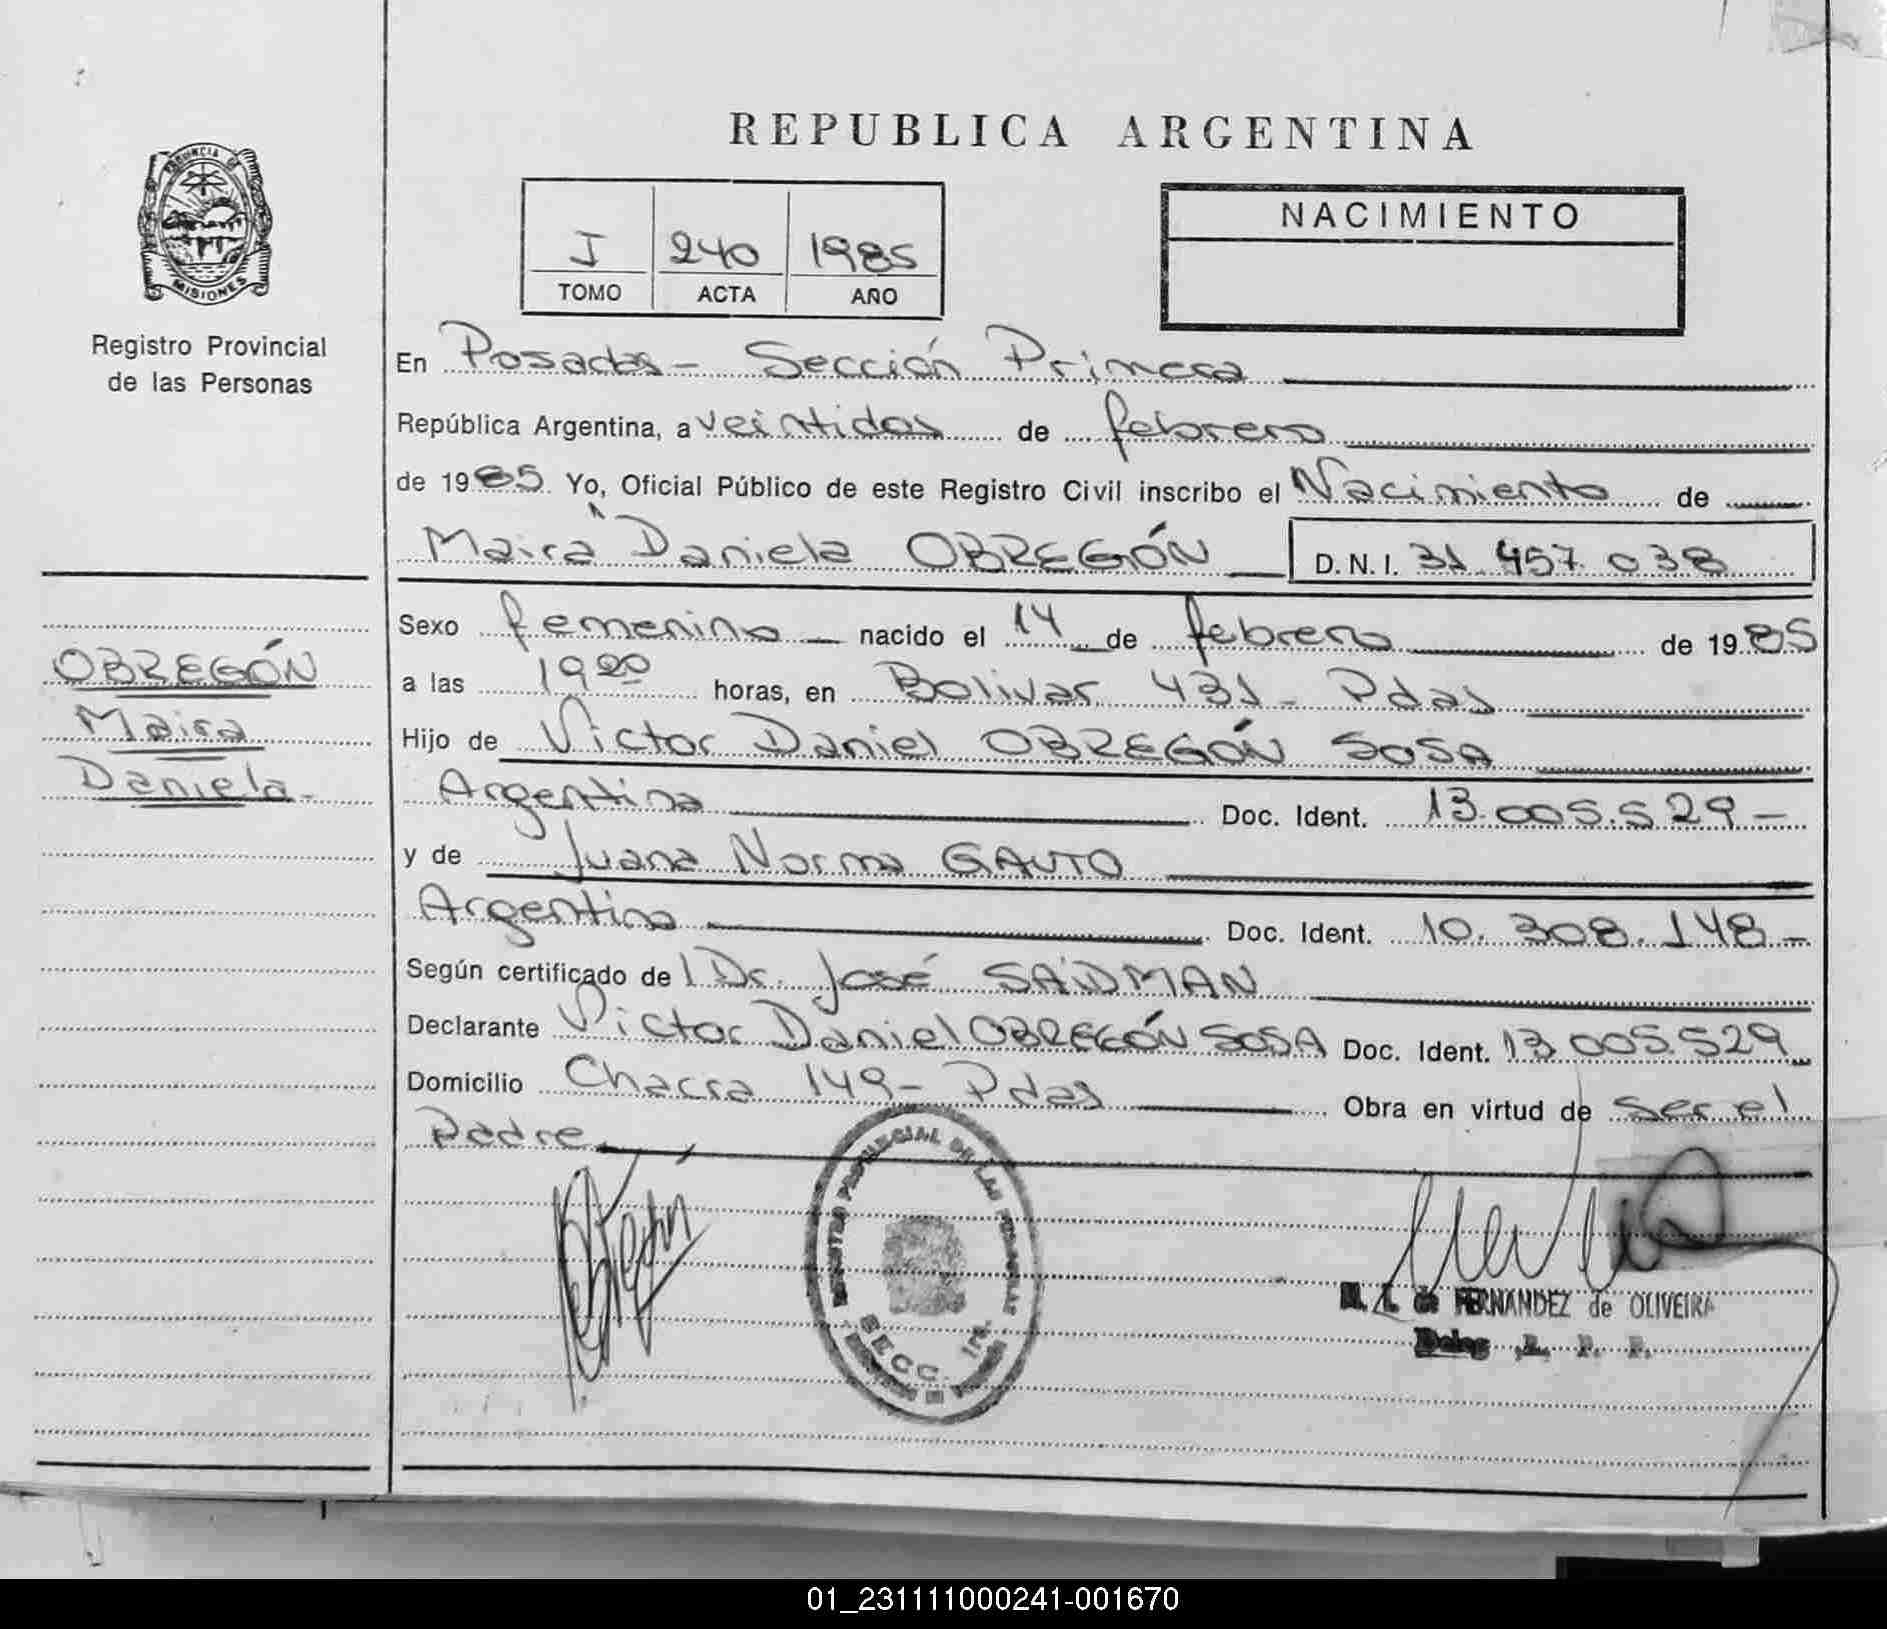 REPUBLICA ARGENTINA
PROVINCIA DE
MISIONES
Registro Provincial
de las Personas
J 240 1985
TOMO ACTA AÑO
NACIMIENTO
En Posadas - Sección Primera
República Argentina, a veintidos de febrero
de 1985 Yo, Oficial Público de este Registro Civil inscribo el Nacimiento de
Maira Daniela OBREGÓN D. N. I. 31.457.038
OBREGÓN
Maira
Daniela-
Sexo femenino nacido el 14 de febrero de 1985
a las 19 20 horas, en Bolivar 431 - Pdas
Hijo de Victor Daniel OBREGÓN SOSA
Argentina Doc. Ident. 13.005.529-
y de Juana Norma GAUTO
Argentina Doc. Ident. 10.308.148-
Según certificado de l Dr. José SAIDMAN
Declarante Victor Daniel OBREGÓN SOSA Doc. Ident. 13.005.529
Domicilio Chacra 149 - Pdas Obra en virtud de ser el
Padre
REGISTRO PROVINCIAL DE LAS PERSONAS
SECC. 1a.
de FERNANDEZ de OLIVEIRA
Deleg. R. P. P.
01_231111000241-001670